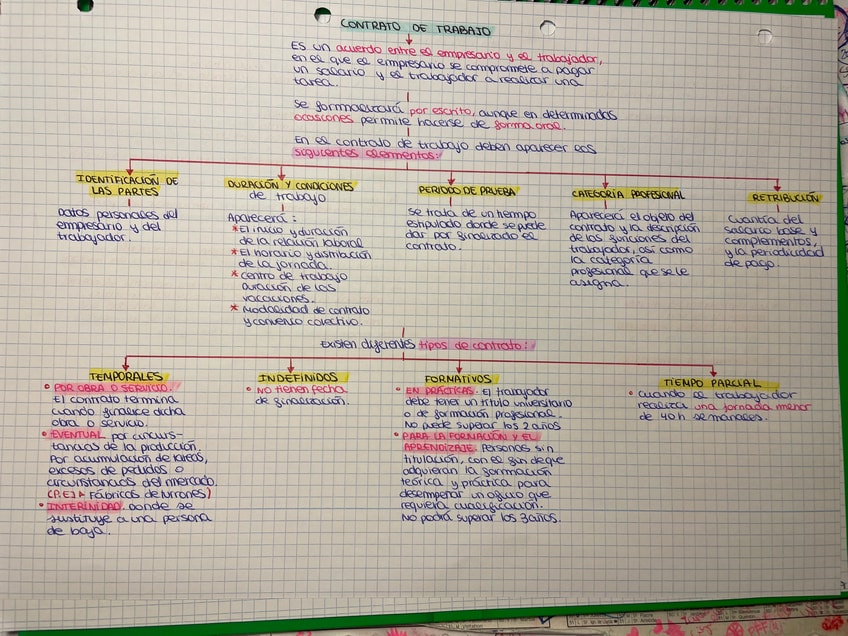 CONTRATO DE TRABAJO
Es un acuerdo entre el empresario y el trabajador,
en el que el empresario se compromete a pagar
un salario y el trabajador a realizar una
tarea.
Se formalizará por escrito, aunque en determinadas
ocasiones permite hacerse de forma oral.
En el contrato de trabajo deben aparecer los
siguientes elementos:
IDENTIFICACIÓN DE
LAS PARTES
Datos personales del
empresario y del
trabajador.
DURACIÓN Y CONDICIONES
de trabajo
Aparecerá:
* El inicio y duración
de la relación laboral
* El horario y distribución
de la jornada.
* centro de trabajo
duración de las
vacaciones.
* Modalidad de contrato
y convenio colectivo.
PERIODO DE PRUEBA
Se trata de un tiempo
estipulado donde se puede
dar por finalizado el
contrato.
CATEGORÍA PROFESIONAL
Aparecerá el objeto del
contrato y la descripción
de las funciones del
trabajador, así como
la categoría
profesional que se le
asigna.
RETRIBUCIÓN
Cuantía del
salario base y
complementos,
y la periodicidad
de pago.
Existen diferentes tipos de contrato:
TEMPORALES
• POR OBRA O SERVICIO.
El contrato termina
cuando finalice dicha
obra o servicio.
• EVENTUAL por circuns-
tancias de la producción,
Por acumulación de tareas,
excesos de pedidos o
circunstancias del mercado.
(P.EJ → Fábricas de turrones)
• INTERINIDAD. donde se
sustituye a una persona
de baja.
INDEFINIDOS
• No tienen fecha
de finalización.
FORMATIVOS
• EN PRÁCTICAS. El trabajador
debe tener un título universitario
o de formación profesional.
No puede superar los 2 años
• PARA LA FORMACIÓN Y EL
APRENDIZAJE. Personas sin
titulación, con el fin de que
adquieran la formación
teórica y práctica para
desempeñar un oficio que
requiera cualificación.
No podrá superar los 3 años.
TIEMPO PARCIAL
• cuando el trabajador
realiza una jornada menor
de 40h semanales.